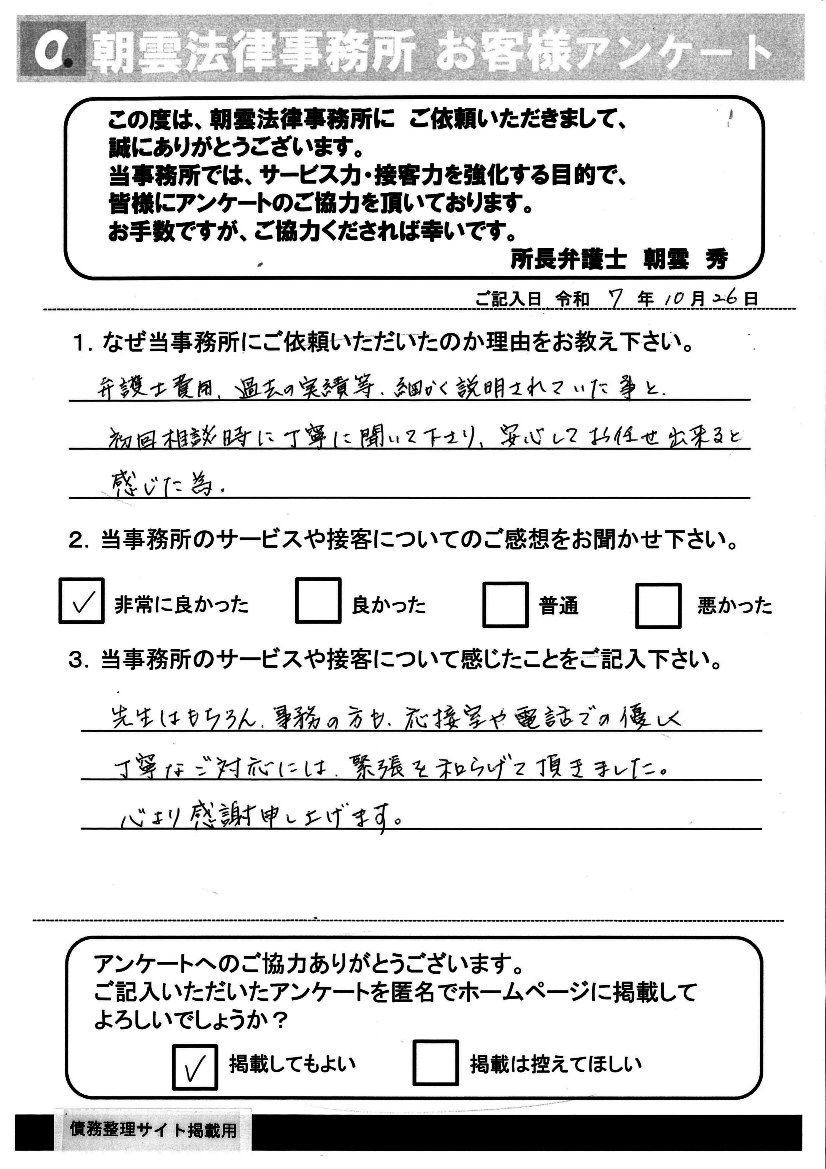 a. 朝雲法律事務所 お客様アンケート
この度は、朝雲法律事務所に ご依頼いただきまして、
誠にありがとうございます。
当事務所では、サービス力・接客力を強化する目的で、
皆様にアンケートのご協力を頂いております。
お手数ですが、ご協力くだされば幸いです。
所長弁護士 朝雲 秀
ご記入日 令和 7 年 10 月 26 日
1. なぜ当事務所にご依頼いただいたのか理由をお教え下さい。
弁護士費用、過去の実績等、細かく説明されていた事と、
初回相談時に丁寧に聞いて下さり、安心してお任せ出来ると
感じた為。
2. 当事務所のサービスや接客についてのご感想をお聞かせ下さい。
✓ 非常に良かった 良かった 普通 悪かった
3. 当事務所のサービスや接客について感じたことをご記入下さい。
先生はもちろん、事務の方も、応接室や電話での優しく
丁寧なご対応には、緊張を和らげて頂きました。
心より感謝申し上げます。
アンケートへのご協力ありがとうございます。
ご記入いただいたアンケートを匿名でホームページに掲載して
よろしいでしょうか?
✓ 掲載してもよい 掲載は控えてほしい
債務整理サイト掲載用